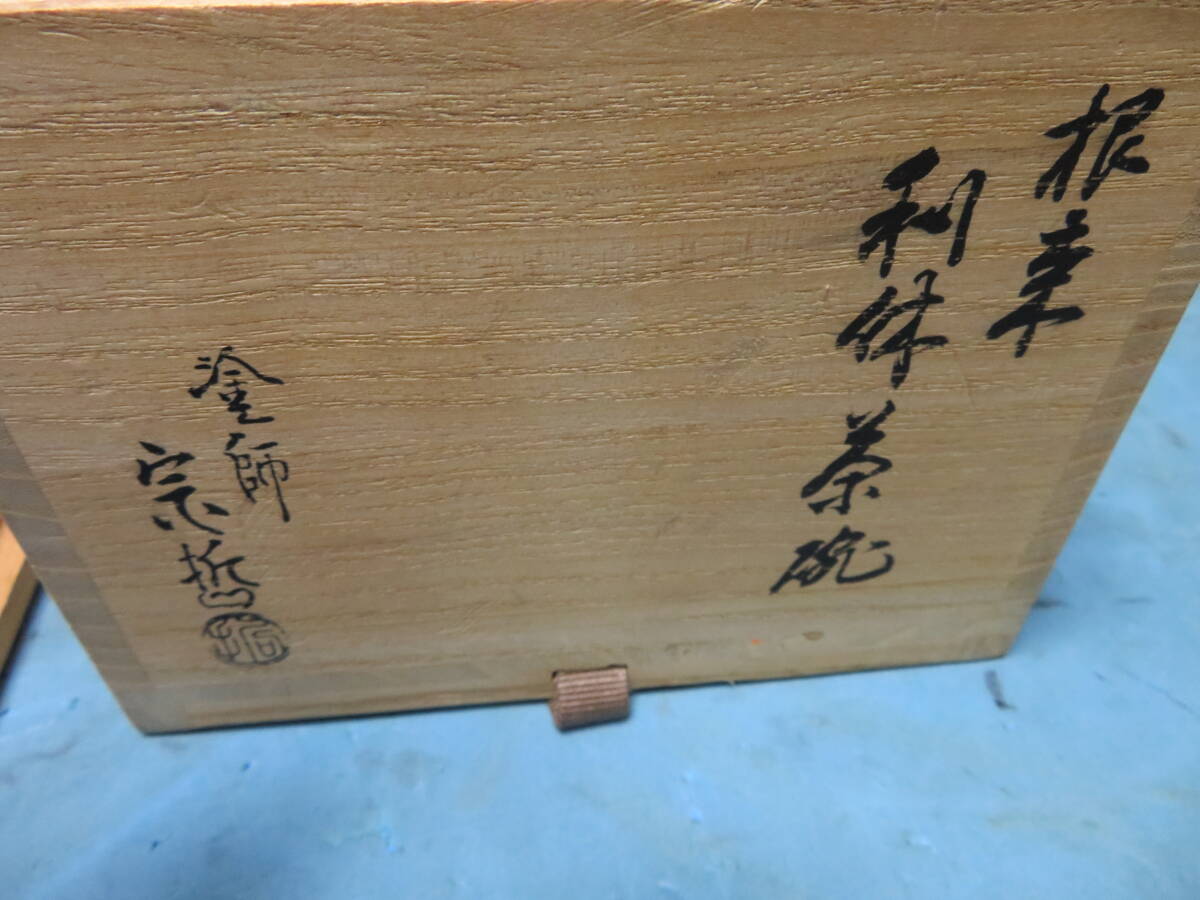 根来
利休茶碗
塗師
宗哲
哲